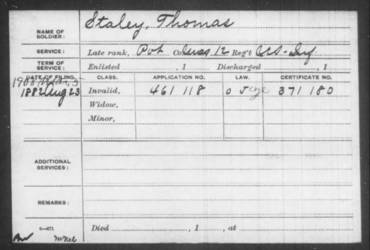 NAME OF SOLDIER: Staley, Thomas
SERVICE: Late rank, Pvt Co. 12 Reg't U.S. Inf
TERM OF SERVICE: Enlisted , 1 Discharged , 1
DATE OF FILING. CLASS. APPLICATION NO. LAW. CERTIFICATE NO.
1882 Aug 23 Invalid, 461 118 371 180
Widow,
Minor,
ADDITIONAL SERVICES:
REMARKS:
Died , 1 , at